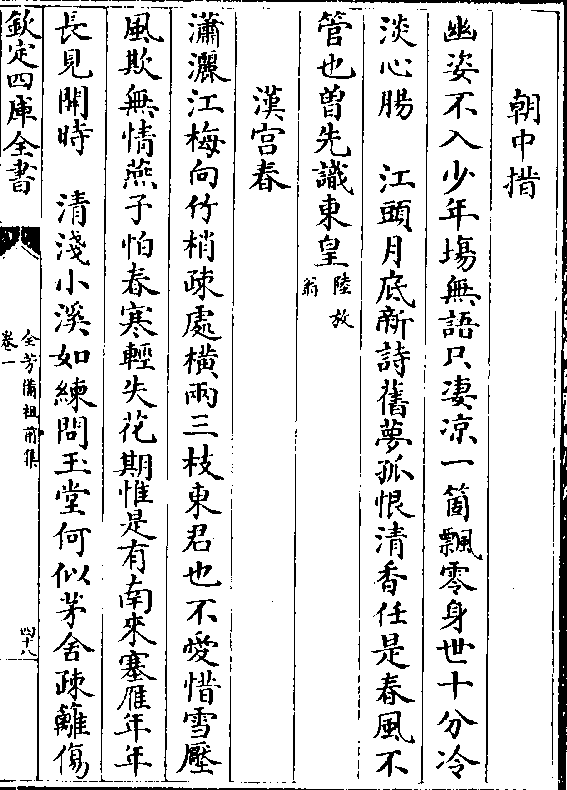 朝中措
幽姿不入少年塲無語只淒凉一箇飄零身世十分冷
淡心腸　江頭月底新詩舊夢孤恨清香任是春風不
管也曽先識東皇陸放翁
漢宫春
瀟灑江梅向竹梢疎處橫兩三枝東君也不愛惜雪壓
風欺無情燕子怕春寒輕失花期惟是有南來塞雁年年
長見開時　清淺小溪如練問玉堂何似茅舍疎籬傷
欽定四庫全書
全芳備祖前集
卷一
四十八